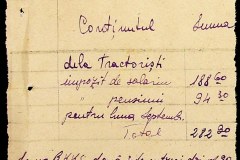 Conținutul Suma
dela Tractoriști
impozit de salarii 188 60
" pensiuni 94 30
pentru luna Septembr.
Total 282 90